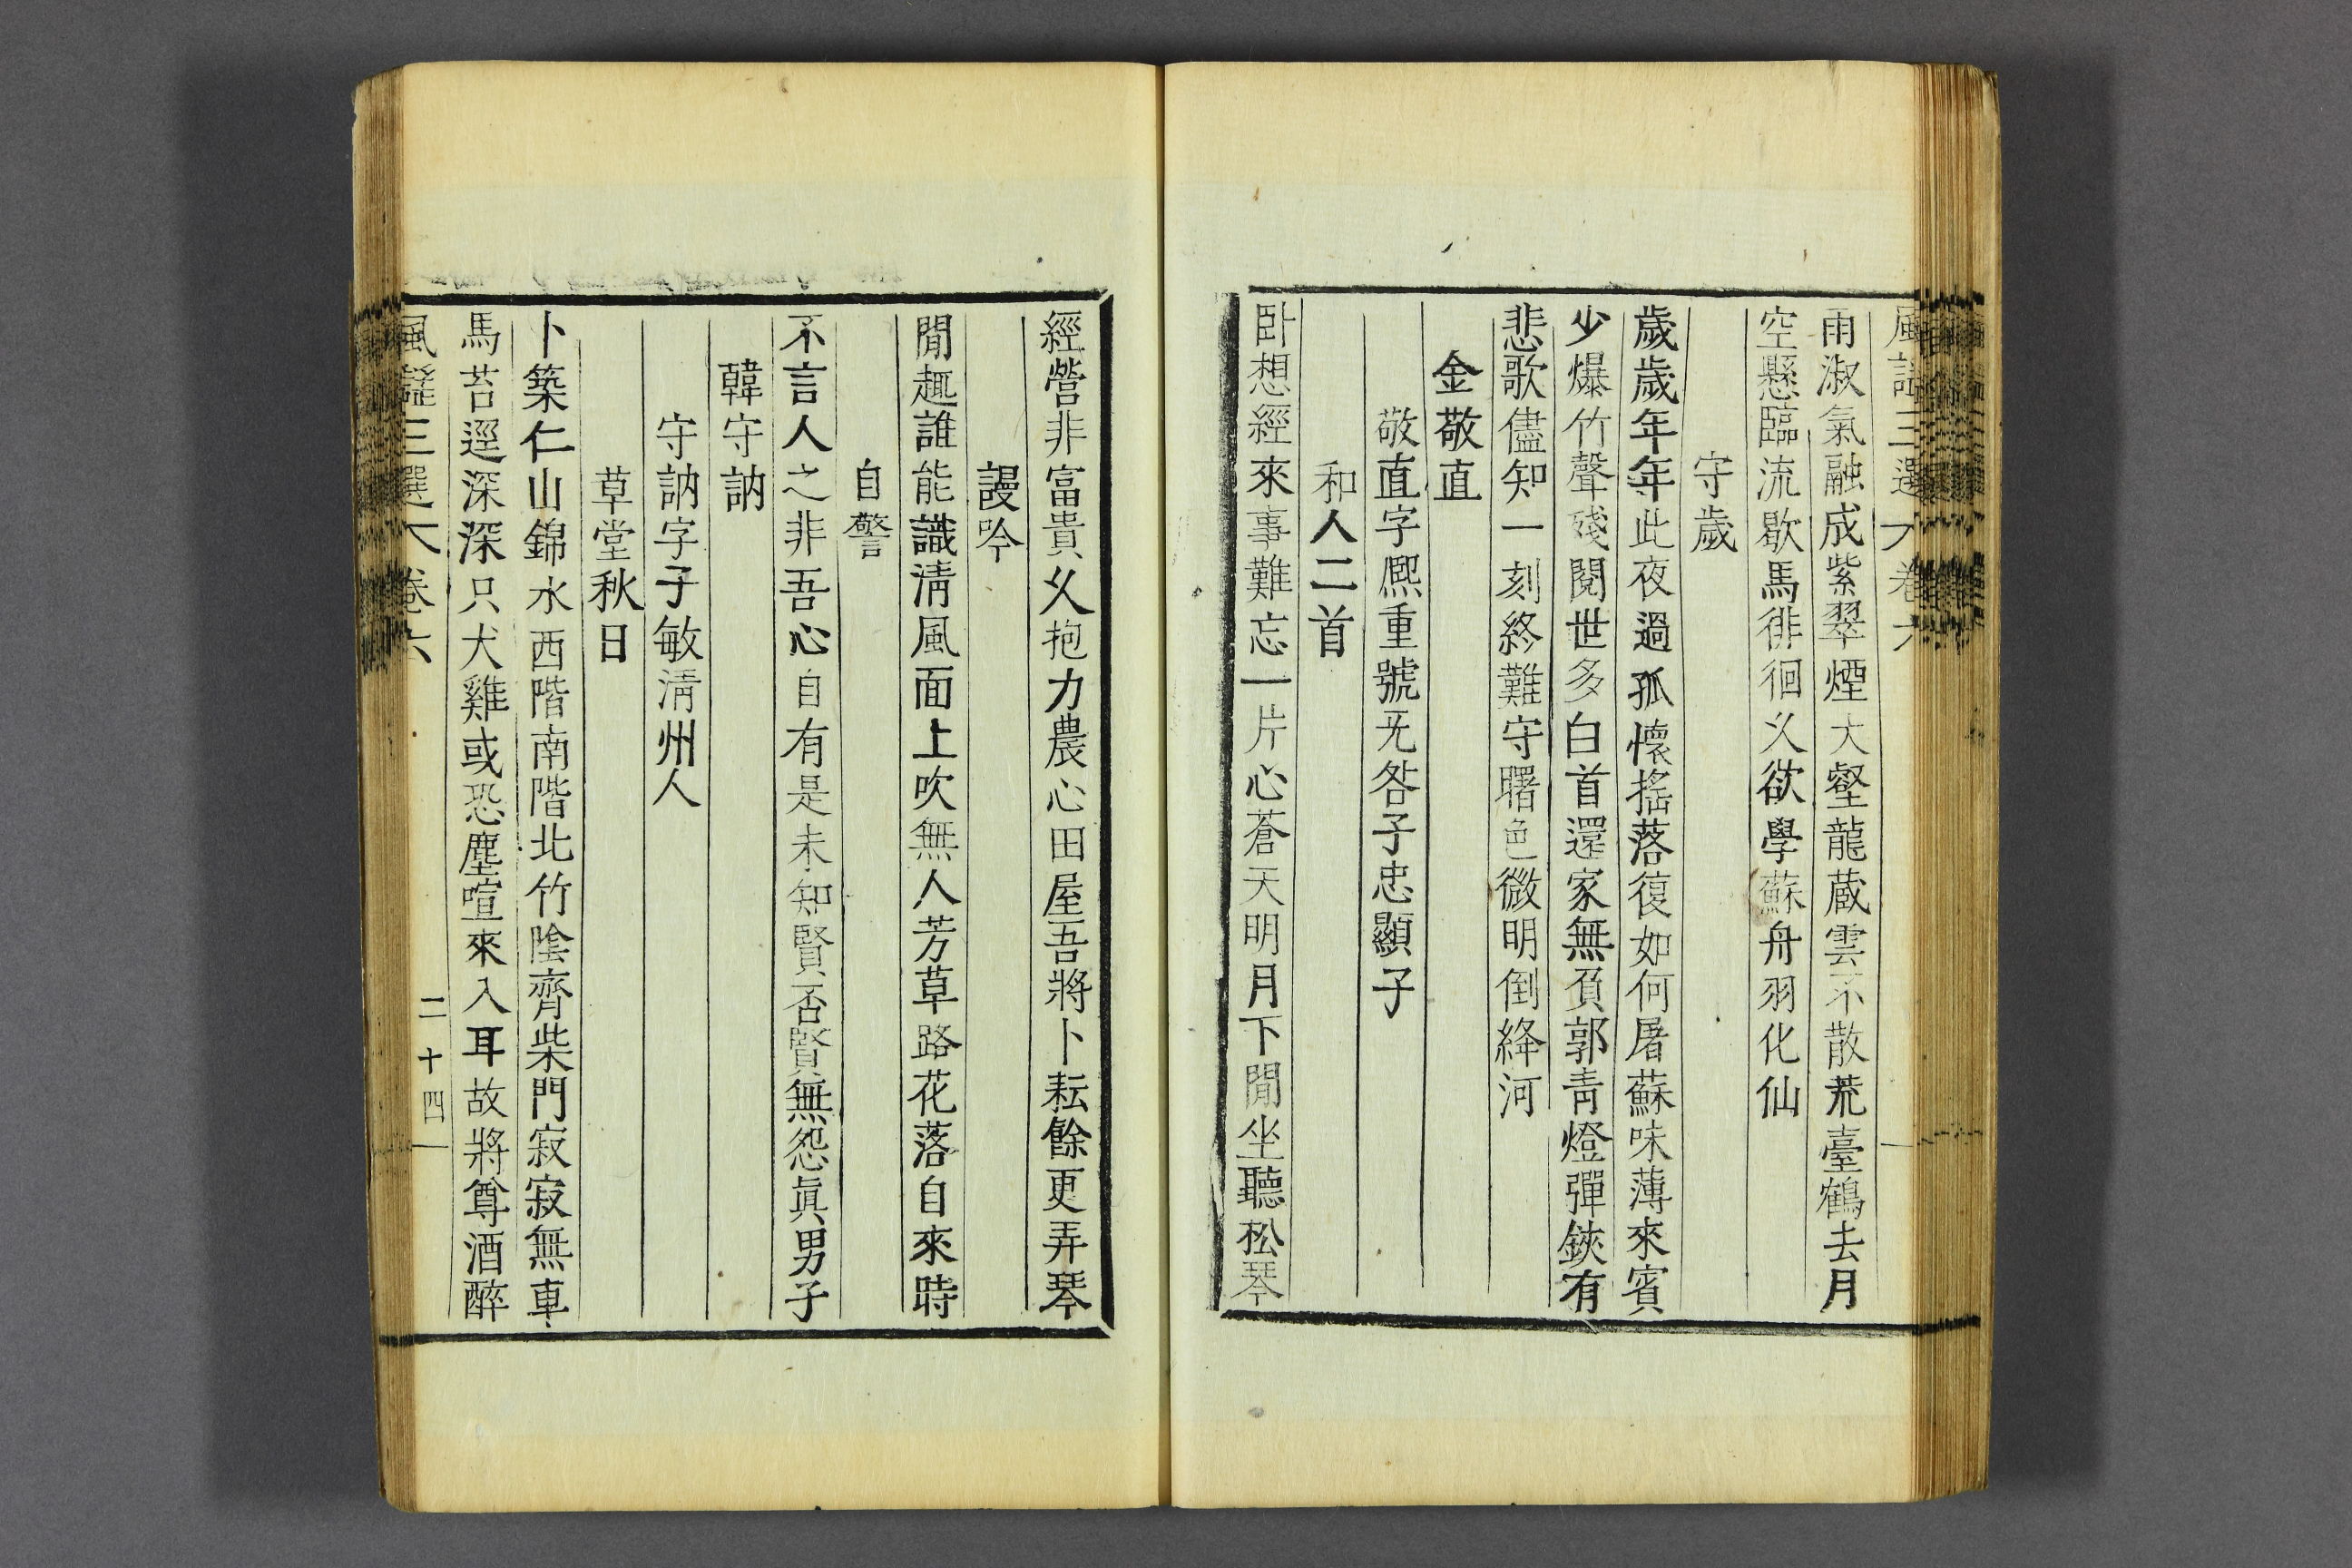 風謠三選 卷六
雨淑氣融成紫翠煙大壑龍蔵雲不散荒臺鶴去月
空懸臨流歇馬徘徊乆欲學蘇舟羽化仙
守歲
歲歲年年此夜過孤懷搖落復如何屠蘇味薄來賓
少爆竹聲殘閱世多白首還家無負郭靑燈彈鋏有
悲歌儘知一刻終難守曙色微明倒絳河
金敬直
敬直字熈重號无咎子忠顯子
和人二首
卧想經來事難忘一片心蒼天明月下閒坐聽松琴
經營非富貴乆抱力農心田屋吾將卜耘餘更弄琴
謾吟
閒趣誰能識淸風面上吹無人芳草路花落自來時
自警
不言人之非吾心自有是未知賢否賢無怨眞男子
韓守訥
守訥字子敏淸州人
草堂秋日
卜築仁山錦水西階南階北竹陰齊柴門寂寂無車
馬苔逕深深只犬雞或恐塵喧來入耳故將尊酒醉
風謠三選 卷六 二十四